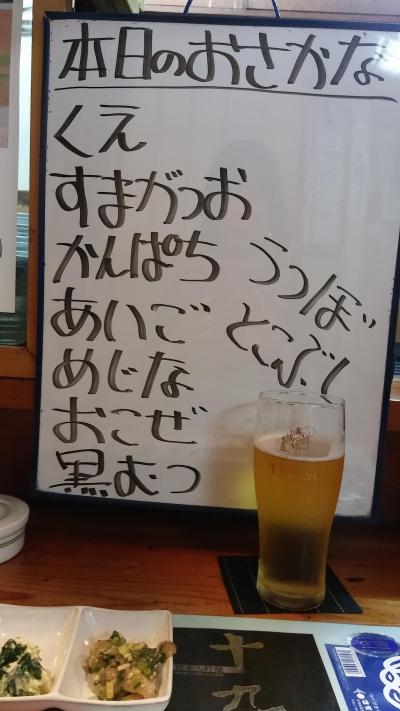 本日のおさかな
くえ
すまがつお
かんぱち
あいご
めじな
おこぜ
黒むつ
うつぼ
とこぶし
YEBISU
十九